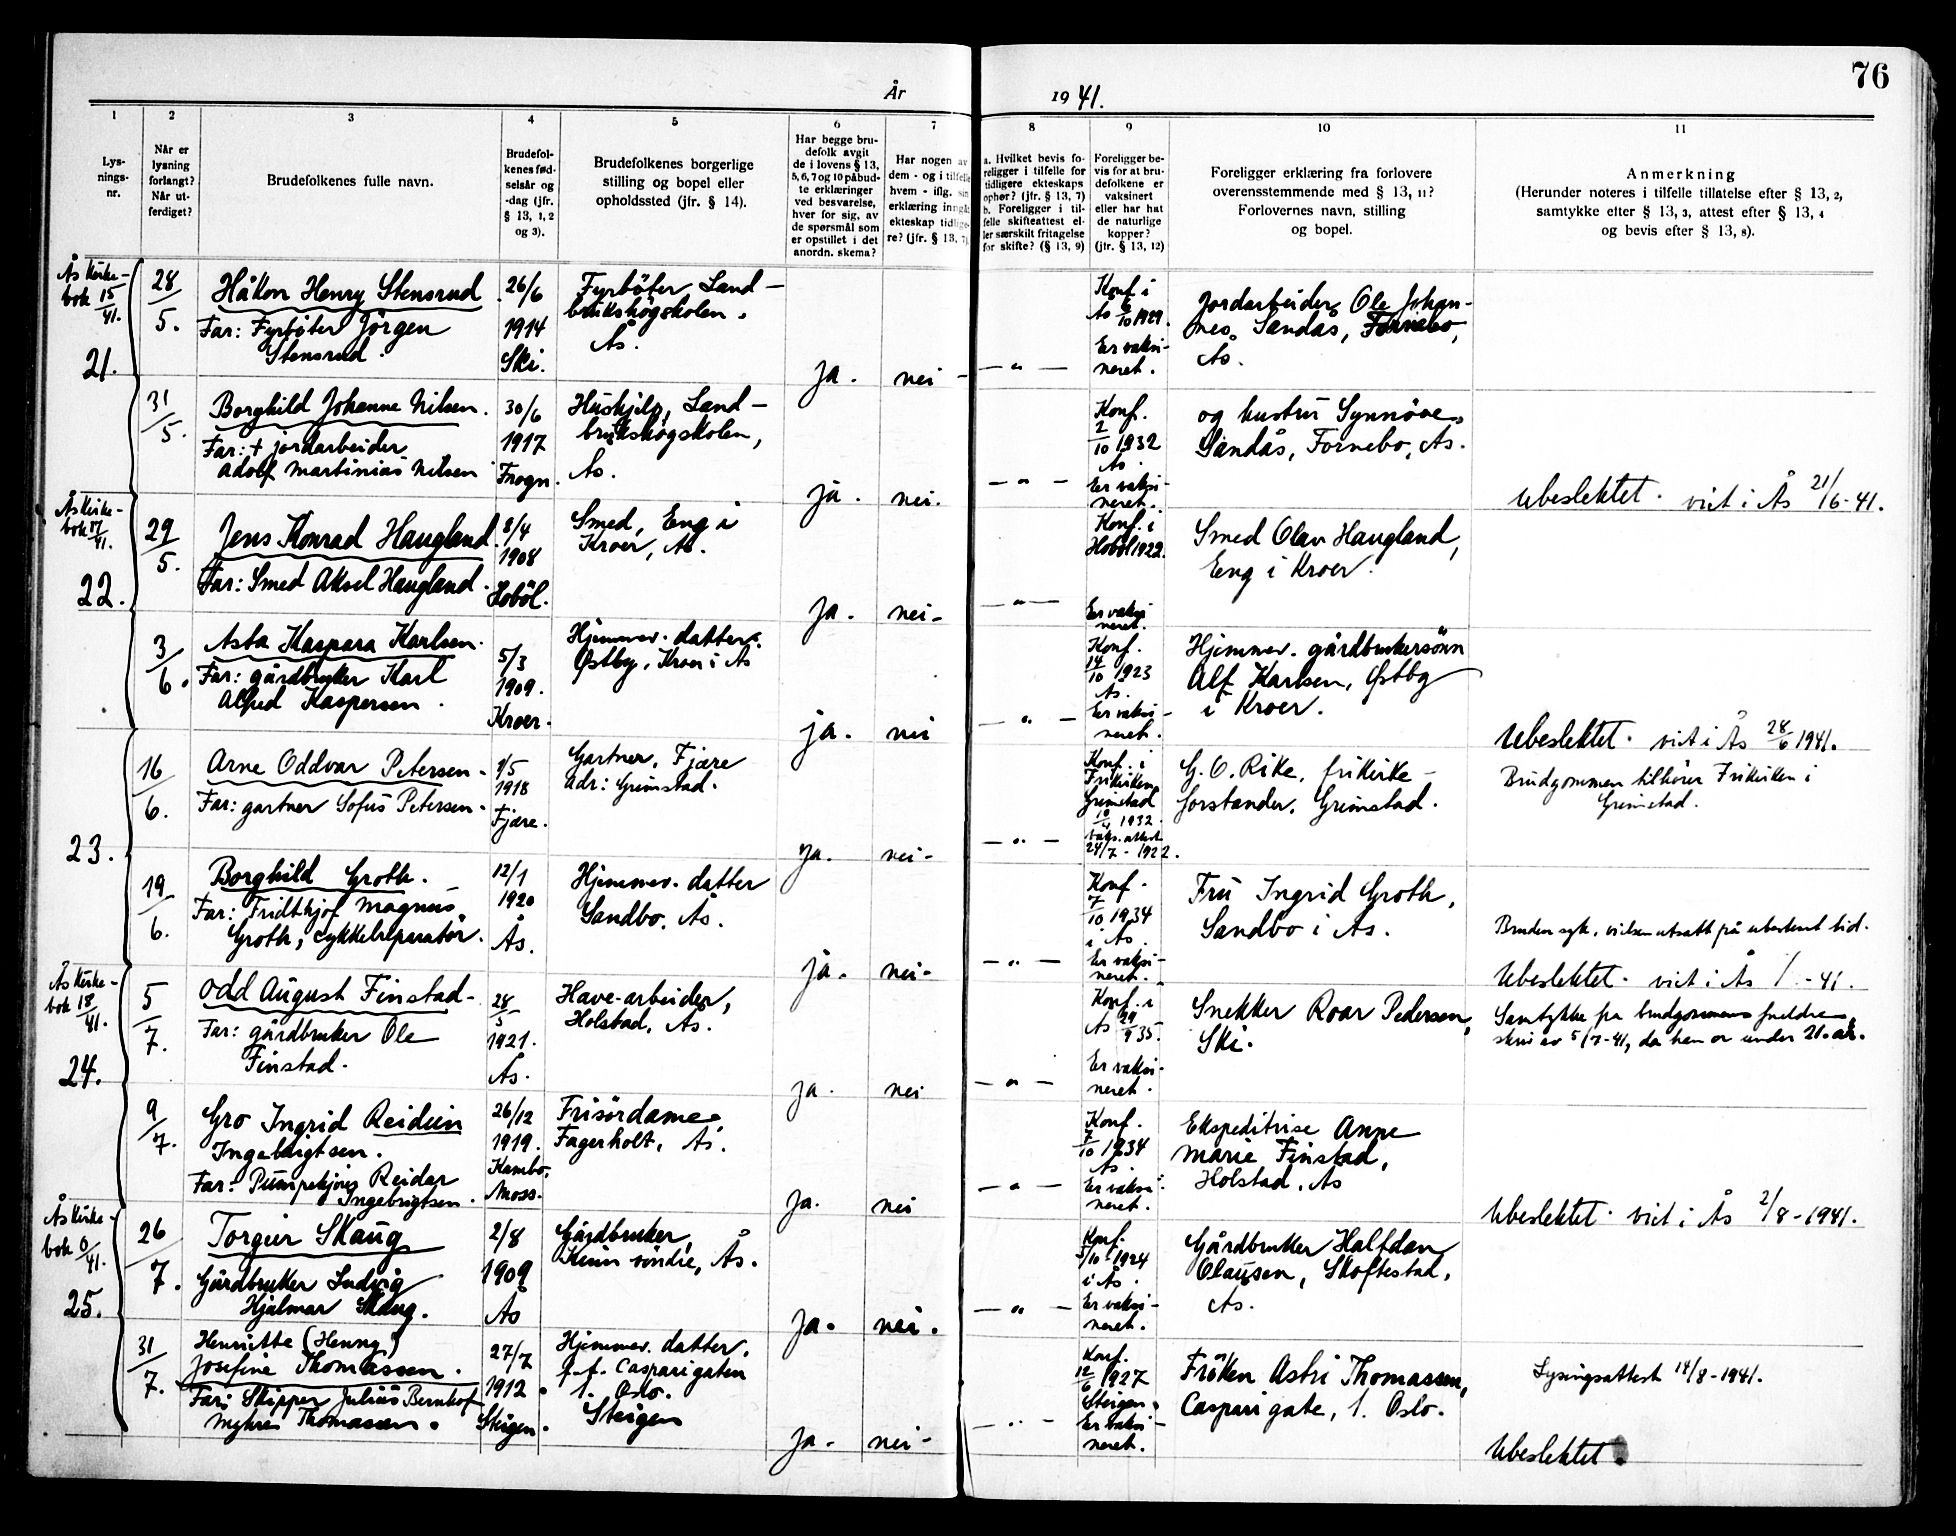 76
År 1941.
1 2 3 4 5 6 7 8 9 10 11
Lys-
nings-
nr.
Når er
lysning
forlangt?
Når ut-
ferdiget?
Brudefolkenes fulle navn.
Brudefol-
kenes fød-
selsår og
-dag (jfr.
§ 13, 1, 2
og 3).
Brudefolkenes borgerlige
stilling og bopel eller
opholdssted (jfr. § 14).
Har begge bru-
defolk avgit
de i lovens § 13,
5, 6, 7 og 10 påbud-
te erklæringer
ved besvarelse,
hver for sig, av
de spørsmål som
er opstillet i det
anordn. skema?
Har nogen av
dem - og i tilfelle
hvem - iflg. sin
erklæring inngåt
ekteskap tidlige-
re? (jfr. § 13, 7)
a. Hvilket bevis fo-
religger i tilfelle for
tidligere ekteskaps
ophør? (jfr. § 13, 7)
b. Foreligger i til-
felle skifteattest el-
ler særskilt fritagelse
for skifte? (§ 13, 9)
Foreligger be-
vis for at bru-
defolkene er
vaksinert
eller har hat
de naturlige
kopper?
(jfr. § 13, 12)
Foreligger erklæring fra forlovere
overensstemmende med § 13, 11?
Forlovernes navn, stilling
og bopel.
Anmerkning
(Herunder noteres i tilfelle tillatelse efter § 13, 2,
samtykke efter § 13, 3, attest efter § 13, 4
og bevis efter § 13, 8).
Ås Kirke-
bok 15/41.
21.
28/5.
Håkon Henry Stensrud
Far: Fyrbøter Jörgen
Stensrud.
26/6
1914
Ski.
Fyrbøter Land-
brukshøgskolen.
Ås.
ja.
nei -
— " —
Konf i
Ås 6/10 1929.
Er vaksi-
neret.
Jordarbeider Ole Johan-
nes Sandås, Fornebo,
Ås.
31/5.
Borghild Johanne Nilsen.
Far: + jordarbeider
Adolf Martinius Nilsen
30/6
1917
Frogn.
Hushjelp, Land-
brukshøgskolen,
Ås.
ja.
nei.
— " —
Konf.
2/10 1932
Ås.
Er vaksi-
neret.
og hustru Synnöve
Sandås, Fornebo, Ås.
Ubeslektet. viet i Ås 21/6-41.
Ås Kirke-
bok 17/41.
22.
29/5.
Jens Konrad Haugland.
Far: Smed Aksel Haugland.
8/4
1908
Hobøl.
Smed, Eng i
Kroer, Ås.
ja.
nei-
— " —
Konf. i
Hobøl 1922.
Er vaksi
neret.
Smed Olav Haugland,
Eng i Kroer.
3/6.
Asta Kaspara Karlsen.
Far: gårdbruker Karl
Alfred Kaspersen.
5/3
1909.
Kroer.
Hjemmev. datter.
Østby, Kroer i Ås
ja.
nei
— " —
Konf.
14/10 1923
Ås.
Er vaksi-
neret.
Hjemmev. gårdbrukersönn
Alf Karlsen, Østby
i Kroer.
Ubeslektet. viet i Ås 28/6 1941.
23.
16/6.
Arne Oddvar Petersen.
Far: gartner Sofus Petersen.
1/5
1918
Fjære.
Gartner, Fjære
adr: Grimstad.
ja.
nei-
— " —
Konf. i
Frikirken
Grimstad
10/4 1932.
Vaks. attest
24/7 - 1922.
G. O. Rike, frikirke-
forstander, Grimstad.
Brudgommen tilhører Frikirken i
Grimstad.
19/6.
Borghild Groth.
Far: Fridthjof Magnus
Groth, cykkelreparatör.
12/1
1920
Ås.
Hjemmev. datter
Sandbo. Ås.
ja.
nei-
— " —
Konf.
7/10 1934
i Ås.
Er vaksi-
neret.
Fru Ingrid Groth,
Sandbo i Ås.
Bruden syk, vielsen utsatt på ubestemt tid.
Ubeslektet. viet i Ås / -41.
Ås Kirke-
bok 18/41.
24.
5/7.
Odd August Finstad.
Far: gårdbruker Ole
Finstad.
28/5
1921.
Ås.
Have-arbeider,
Holstad, Ås.
ja.
nei
— " —
Konf. i
Ås 29/9 35.
Er vaksi-
neret.
Snekker Roar Pedersen,
Ski.
Samtykke fra brudgommens foreldre,
skriv av 5/7-41, da han er under 21 år.
9/7.
Gro Ingrid Reidun
Ingebrigtsen.
Far: Pumpekjører Reidar
Ingebrigtsen.
26/12
1919.
Kambo,
Moss.
Frisördame,
Fagerholt, Ås.
ja.
nei
— " —
Konf.
7/10 1934
Ås.
Er vaksi
neret.
Ekspeditrise Anne
Marie Finstad,
Holstad, Ås
Ubeslektet. viet i Ås 2/8-1941.
Ås Kirke-
bok 0/41.
25.
26/7.
Torgeir Skaug
Gårdbruker Ludvig
Hjalmar Skaug.
2/8
1909
Ås
Gårdbruker,
söndre, Ås.
ja.
nei.
— " —
Konf.
5/10-1924
i Ås.
Er vaksi-
neret.
Gårdbruker Halfdan
Olausen, Skoftestad,
Ås.
31/7.
Henriette (Henny)
Josefine Thomassen.
Far: Skipper Julius Bernhof
Myhre Thomassen.
27/7
1912.
Steigen.
Hjemmev. datter.
p.t. Casparigaten
1. Oslo.
Steigen
ja.
nei-
— " —
Konf.
12/6 1927
Steigen.
Er vaksi-
neret.
Fröken Astri Thomassen,
Caspari gate, 1. Oslo.
Lysingsattest 14/8-1941.
Ubeslektet.